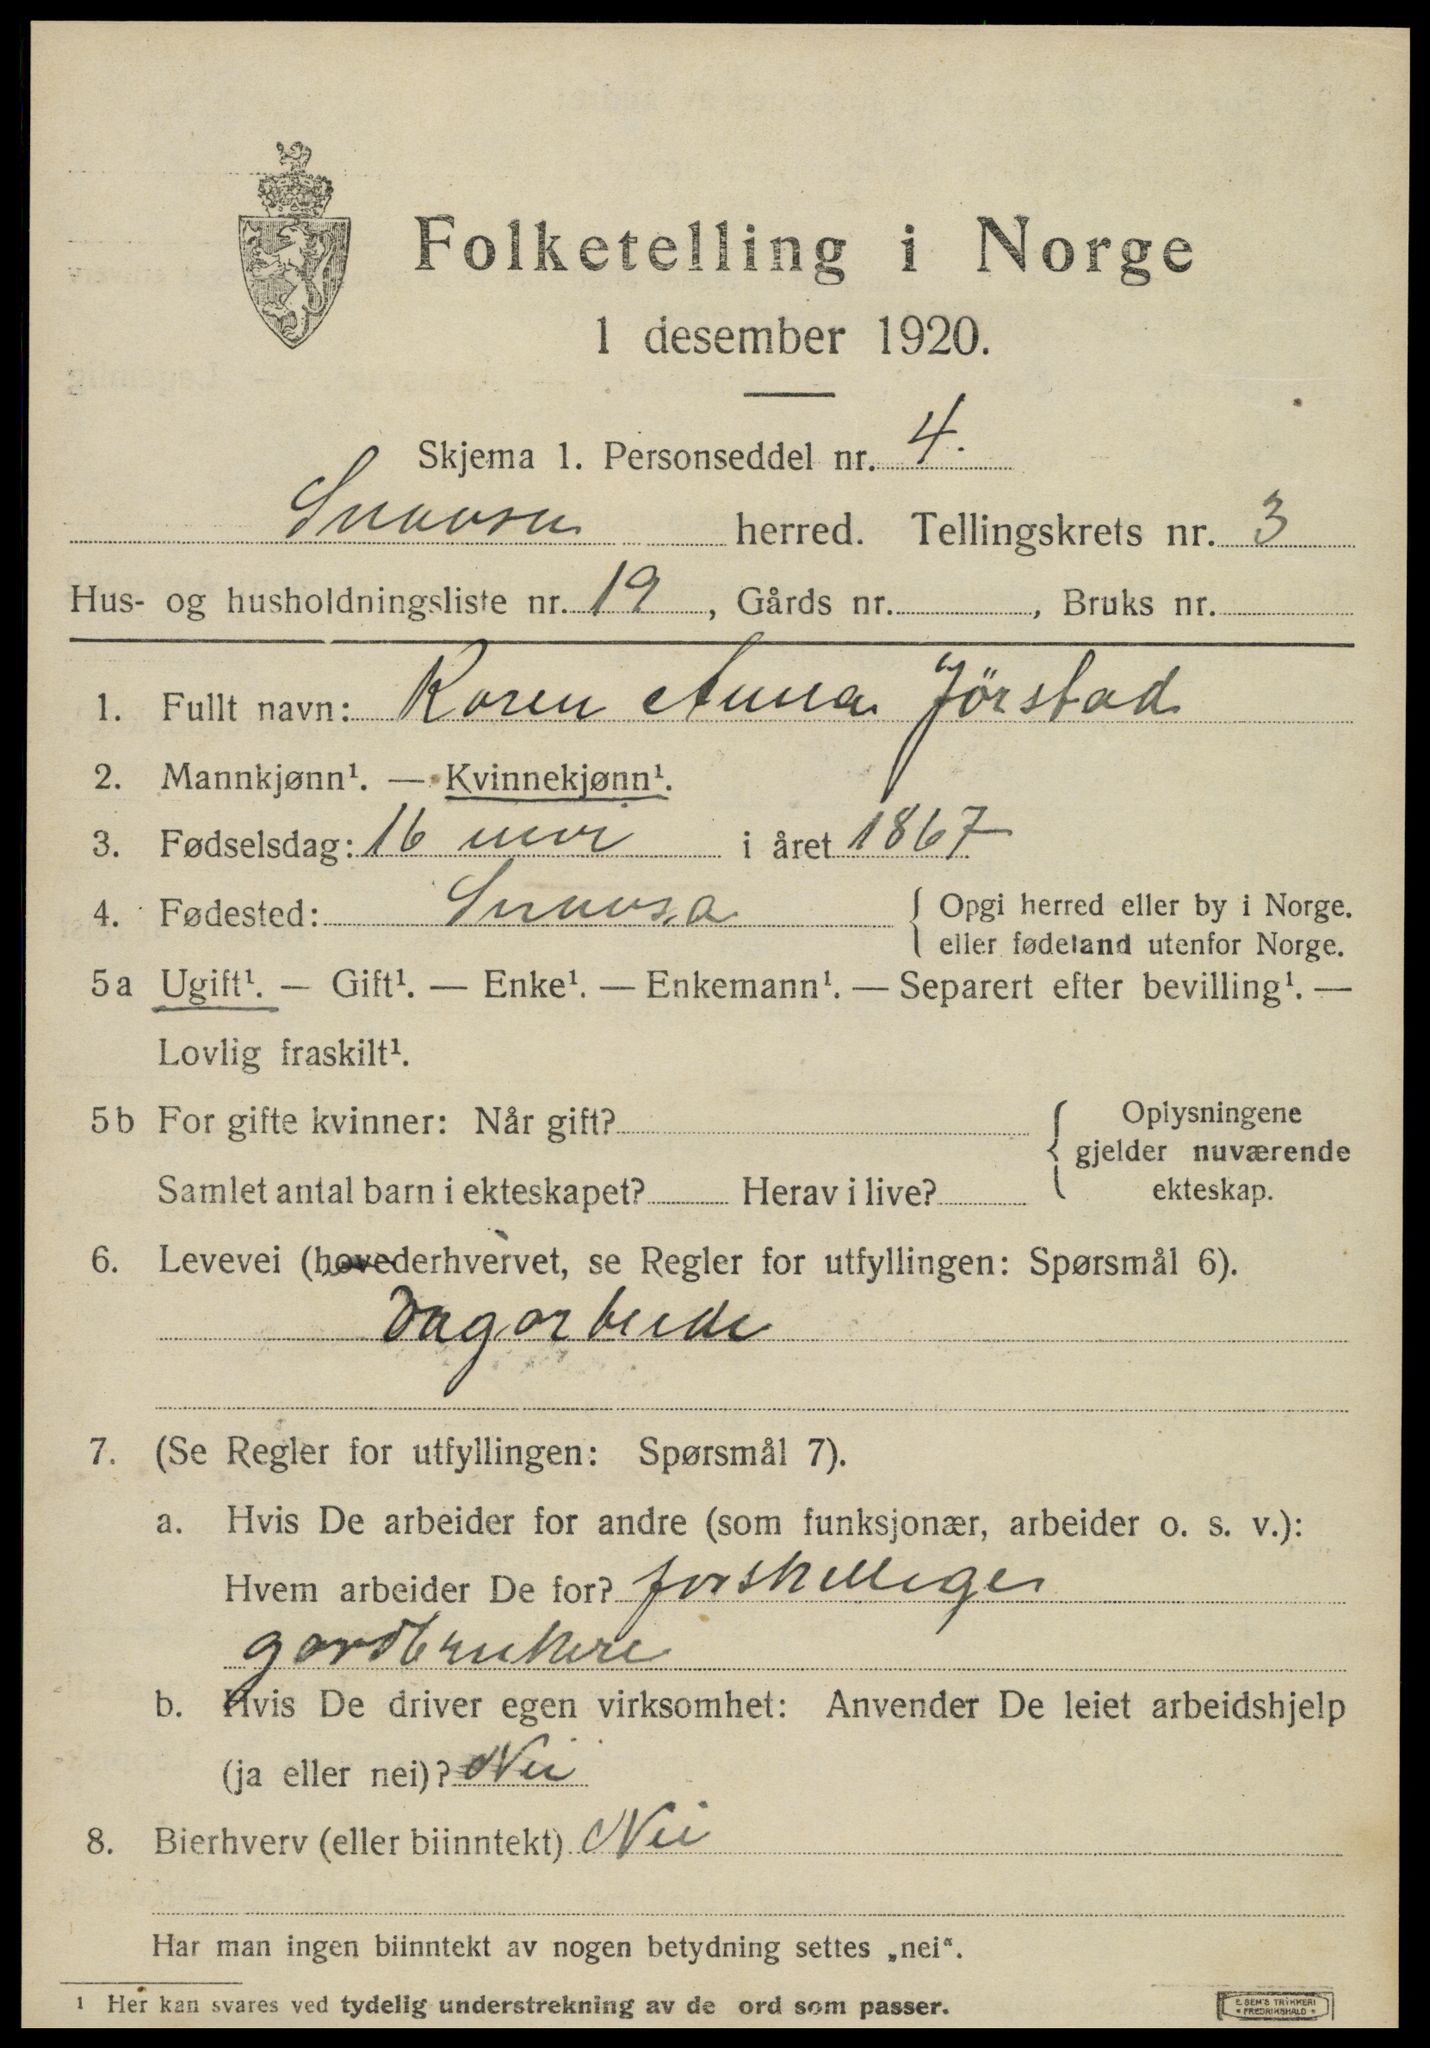 Folketelling i Norge
1 desember 1920.
Skjema 1. Personseddel nr. 4.
Snaasa herred. Tellingskrets nr. 3
Hus- og husholdningsliste nr. 19, Gårds nr. , Bruks nr.
1. Fullt navn: Karen Anna Jörstad
2. Mannkjønn¹. — Kvinnekjønn¹.
3. Fødselsdag: 16 mai i året 1867
4. Fødested: Snaasa { Opgi herred eller by i Norge.
eller fødeland utenfor Norge.
5a Ugift¹. — Gift¹. — Enke¹. — Enkemann¹. — Separert efter bevilling¹. —
Lovlig fraskilt¹.
5b For gifte kvinner: Når gift? { Oplysningene
gjelder nuværende
Samlet antal barn i ekteskapet? Herav i live? ekteskap.
6. Levevei (hovederhvervet, se Regler for utfyllingen: Spørsmål 6).
Dagarbeide
7. (Se Regler for utfyllingen: Spørsmål 7).
a. Hvis De arbeider for andre (som funksjonær, arbeider o. s. v.):
Hvem arbeider De for? forskellige
gardbrukere
b. Hvis De driver egen virksomhet: Anvender De leiet arbeidshjelp
(ja eller nei)? Nei
8. Bierhverv (eller biinntekt) Nei
Har man ingen biinntekt av nogen betydning settes „nei“.
1 Her kan svares ved tydelig understrekning av de ord som passer.
E. SEM'S TRYKKERI
* FREDRIKSHALD *